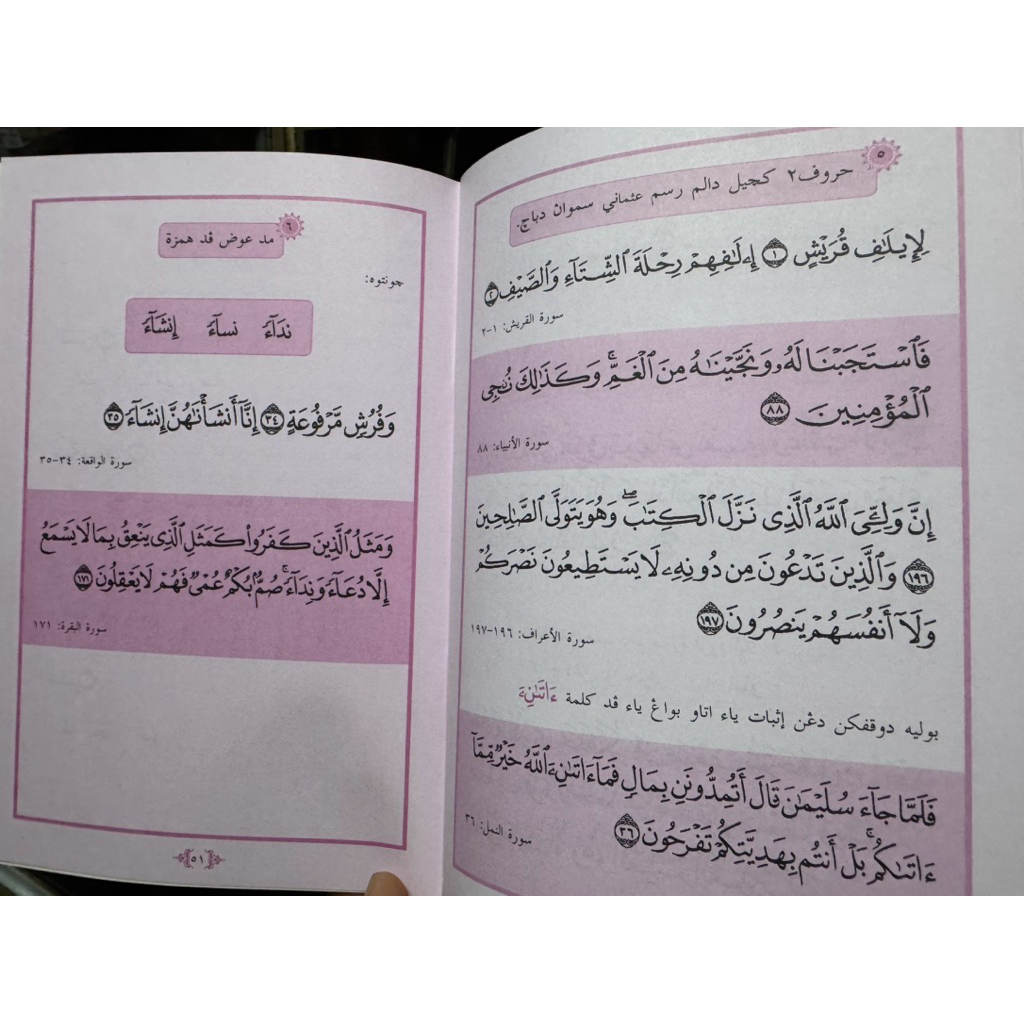 ٥
حروف٢ کچيل دالم رسم عثماني سموان دباچ.
لِإِيلَٰفِ قُرَيْشٍ ١ إِۦلَٰفِهِمْ رِحْلَةَ ٱلشِّتَآءِ وَٱلصَّيْفِ ٢
سورة القريش: ١-٢
فَٱسْتَجَبْنَا لَهُۥ وَنَجَّيْنَٰهُ مِنَ ٱلْغَمِّ ۚ وَكَذَٰلِكَ نُۨجِى
ٱلْمُؤْمِنِينَ ٨٨
سورة الأنبياء: ٨٨
إِنَّ وَلِـِّۧىَ ٱللَّهُ ٱلَّذِى نَزَّلَ ٱلْكِتَٰبَ ۖ وَهُوَ يَتَوَلَّى ٱلصَّٰلِحِينَ
١٩٦ وَٱلَّذِينَ تَدْعُونَ مِن دُونِهِۦ لَا يَسْتَطِيعُونَ نَصْرَكُمْ
وَلَآ أَنفُسَهُمْ يَنصُرُونَ ١٩٧
سورة الأعراف: ١٩٦-١٩٧
بوليه دوقفکن دڠن إثبات ياء اتاو بواڠ ياء ڤد کلمة ءَاتَىٰنِۦَ
فَلَمَّا جَآءَ سُلَيْمَٰنَ قَالَ أَتُمِدُّونَنِ بِمَالٍ فَمَآ ءَاتَىٰنِۦَ ٱللَّهُ خَيْرٌ مِّمَّآ
ءَاتَىٰكُم ۚ بَلْ أَنتُم بِهَدِيَّتِكُمْ تَفْرَحُونَ ٣٦
سورة النمل: ٣٦
٦
مد عوض ڤد همزة
چونتوه:
نِدَآءً نسآءً إِنشَآءً
وَفُرُشٍ مَّرْفُوعَةٍ ٣٤ إِنَّآ أَنشَأْنَٰهُنَّ إِنشَآءً ٣٥
سورة الواقعة: ٣٤-٣٥
وَمَثَلُ ٱلَّذِينَ كَفَرُوا۟ كَمَثَلِ ٱلَّذِى يَنْعِقُ بِمَا لَا يَسْمَعُ
إِلَّا دُعَآءً وَنِدَآءً ۚ صُمٌّۢ بُكْمٌ عُمْىٌ فَهُمْ لَا يَعْقِلُونَ ١٧١
سورة البقرة: ١٧١
٥١